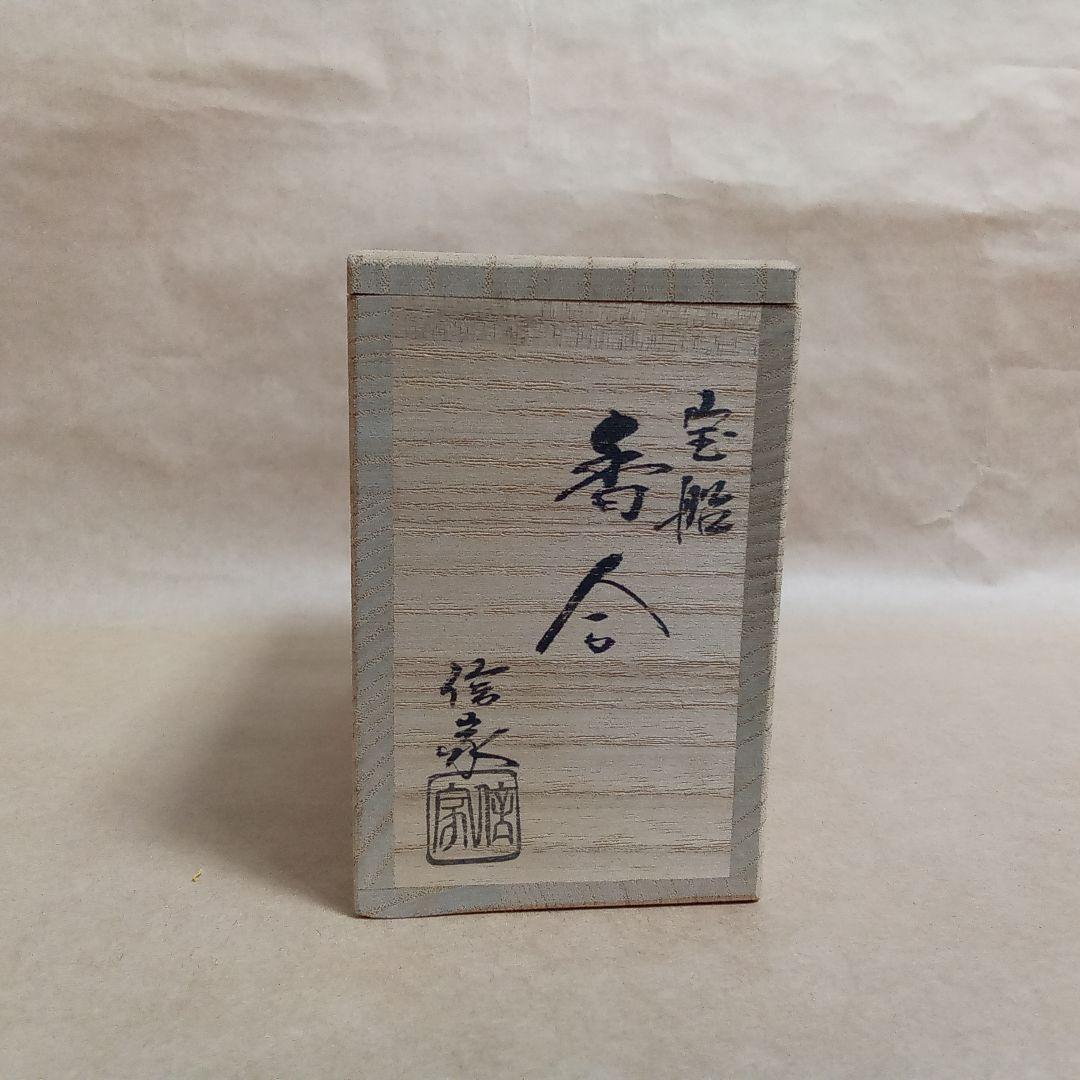 宝船
香合
信家
信家